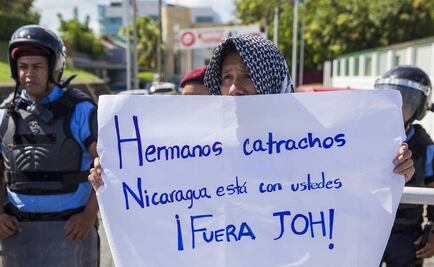 Hermanos catrachos
Nicaragua está con ustedes
¡FUERA JOH!